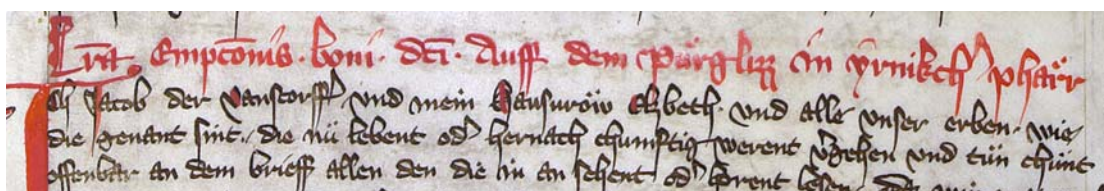 Lr̄a Empc̄onis · boni · dc̄i · Auff dem Pürgliz in yrnikch phaͤrr
Ich Jacob der Vanstorffer und mein Hausurow Elzbeth · und alle unser erben · wie
die genant sint · die nü lebent od' hernach chumftig werent v'gehen und tün chunt
offenbar an dem brieff allen den die in an sehent od' horent lesen